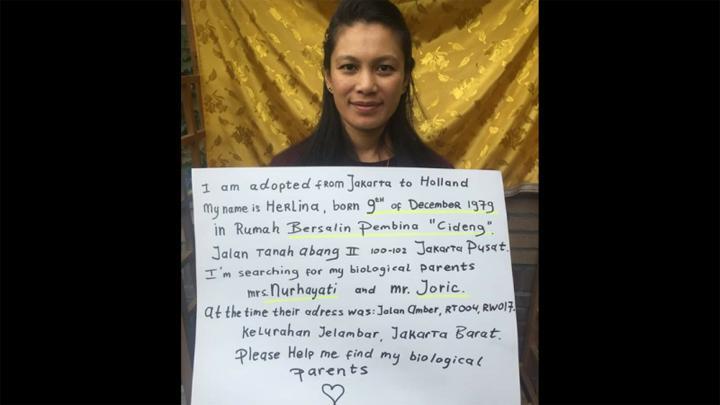 I am adopted from Jakarta to Holland
My name is Herlina, born 9TH of December 1979
in Rumah Bersalin Pembina "Cideng".
Jalan Tanah abang II 100-102 Jakarta Pusat.
I'm searching for my biological parents
mrs. Nurhayati and mr. Joric.
At the time their adress was: Jalan Amber, RT004, RW017.
Kelurahan Jelambar, Jakarta Barat.
Please Help me find my biological
parents